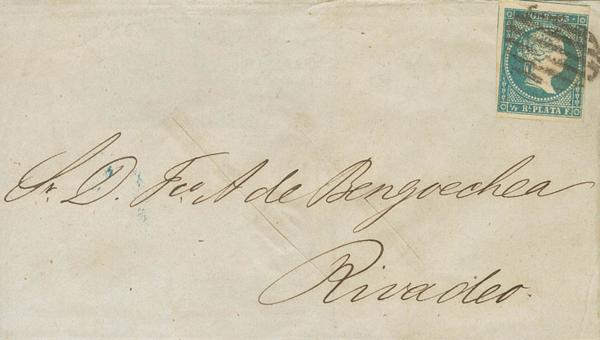 CORREOS
½ Rl. PLATA F.
Sr. D. Fco. A de Bengoechea
Rivadeo.